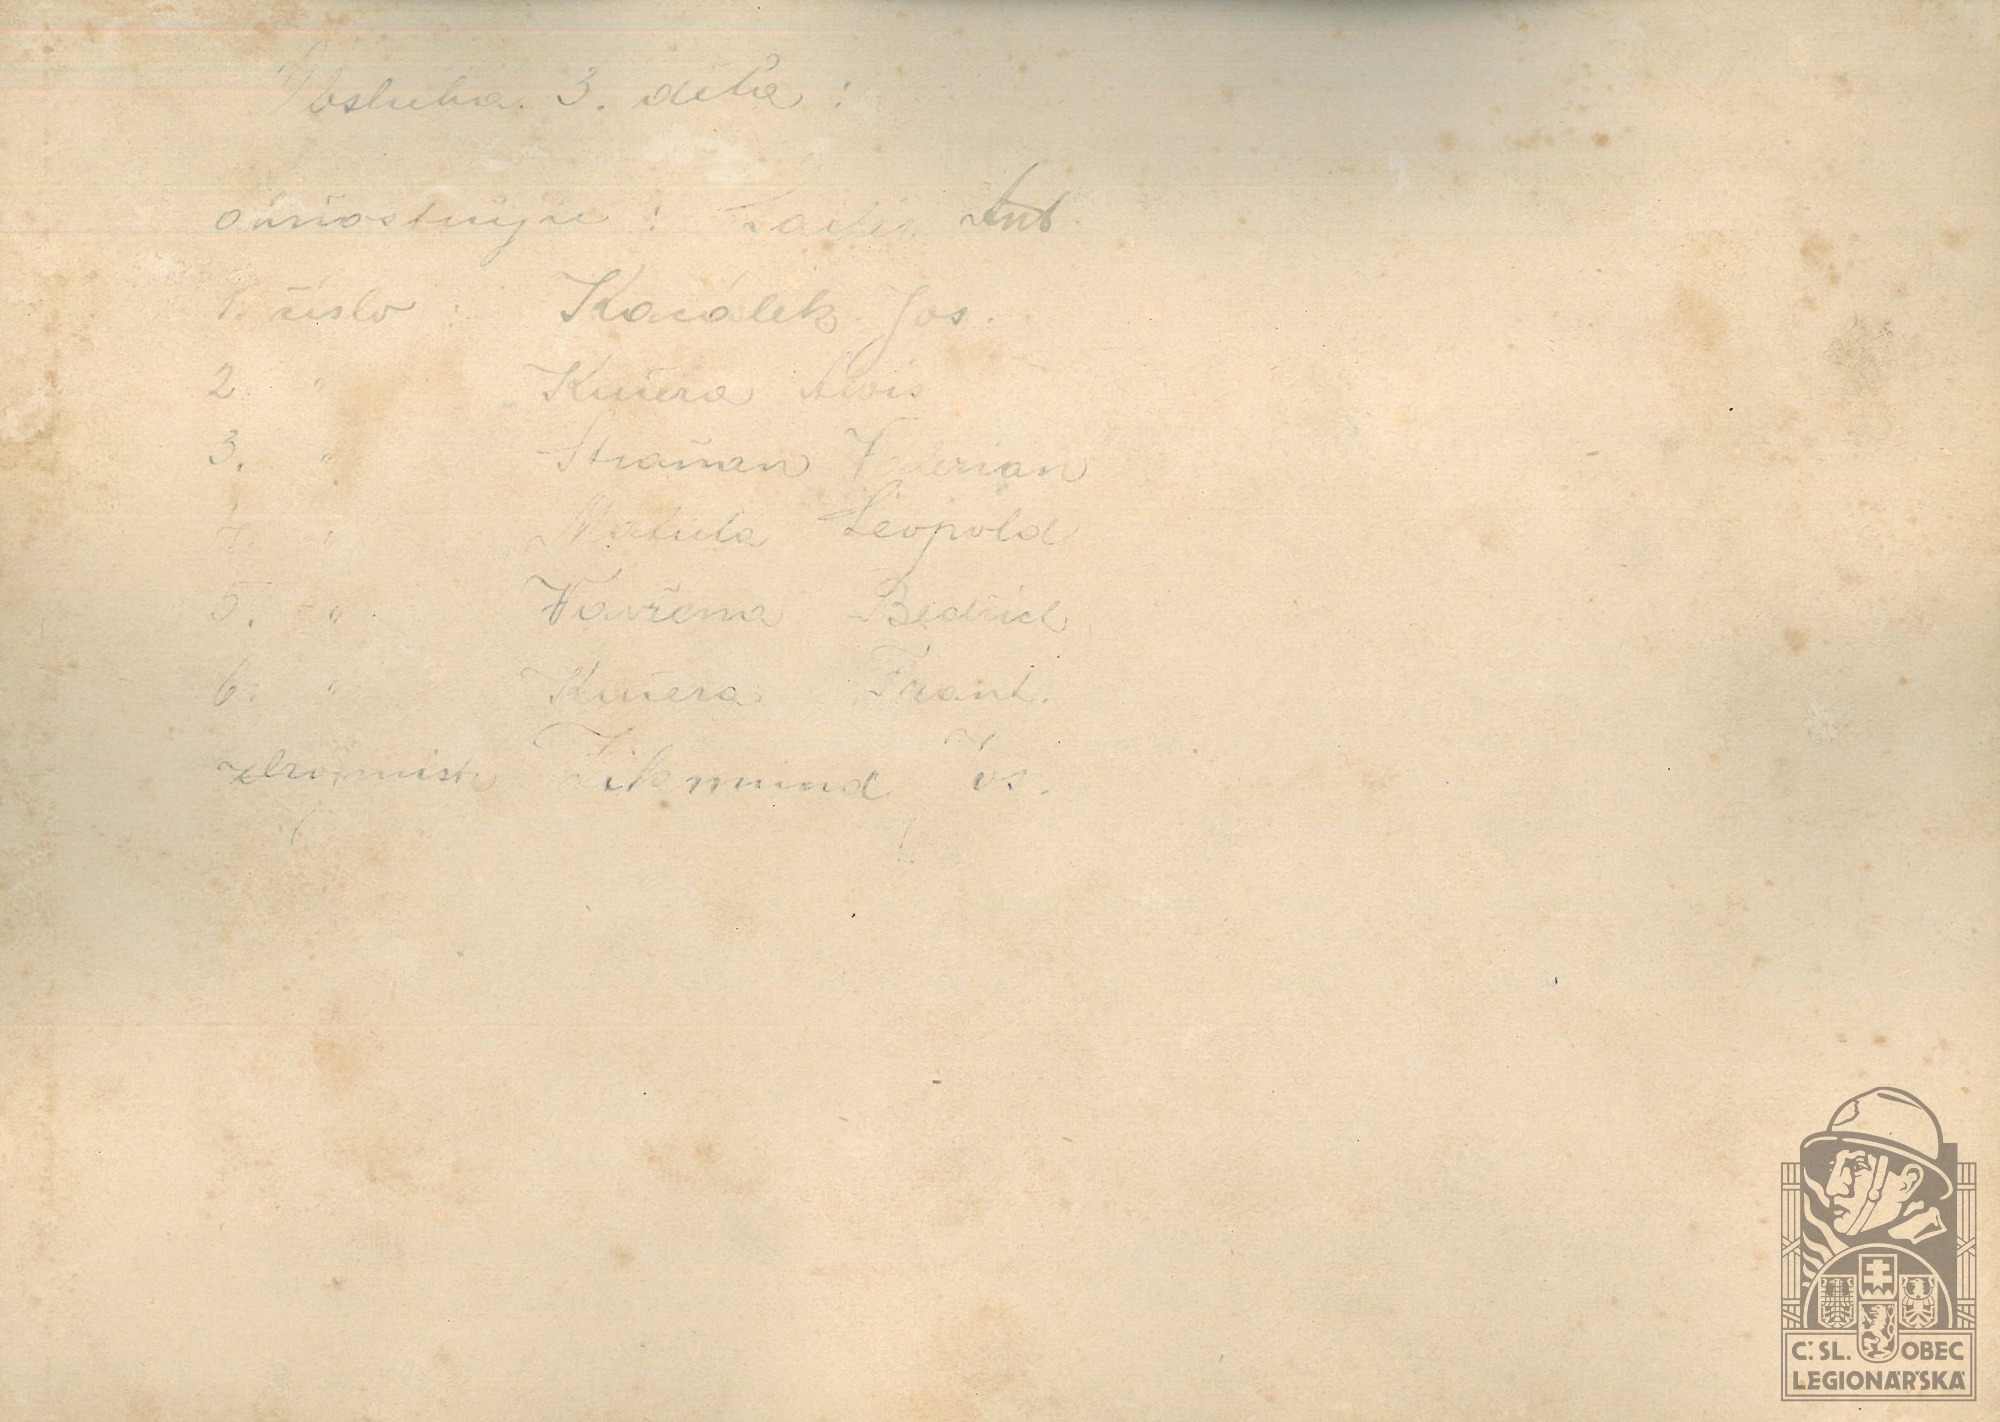 Obsluha 3. děla :
důstojník : Ant.
1. číslo : Karálek Jos.
2. " Kučera Alois
3. " Valerian
4. " Matula Leopold
5. " Vavřena Bedřich
6. " Kučera Frant.
zbrojmistr Zikmund Jos.
Č. SL. OBEC
LEGIONÁŘSKÁ